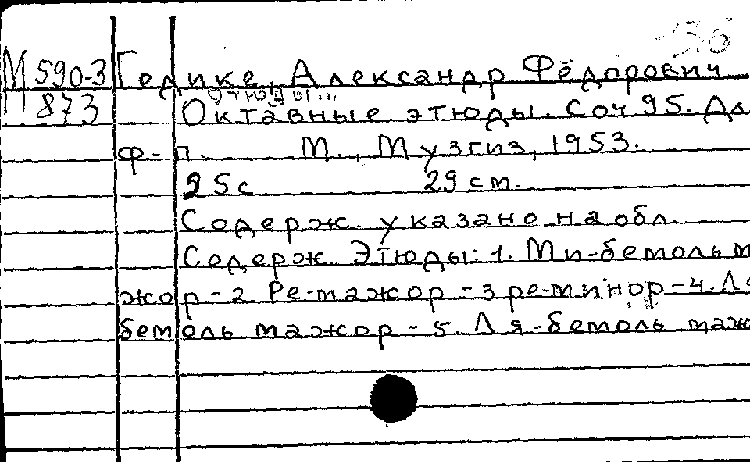 56
М 590-3 Гедике, Александр Фёдорович
873 Октавные этюды. Соч 95. Дл
ф-п. М., Музгиз, 1953.
25с 29 см.
Содерж. указано на обл.
Содерж. Этюды: 1. Ми-бемоль м
жор - 2 Ре-мажор - 3 ре-минор - 4. Ля
бемоль мажор - 5. Ля-бемоль маж